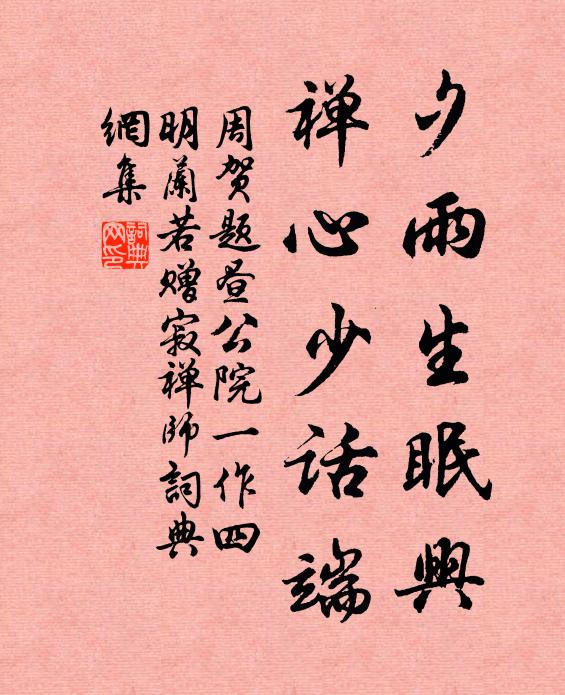 夕雨生眠興
禅心少话端
周贺题昼公院一作四
明蘭若赠寂禅师詞典
網集
詞典
网印